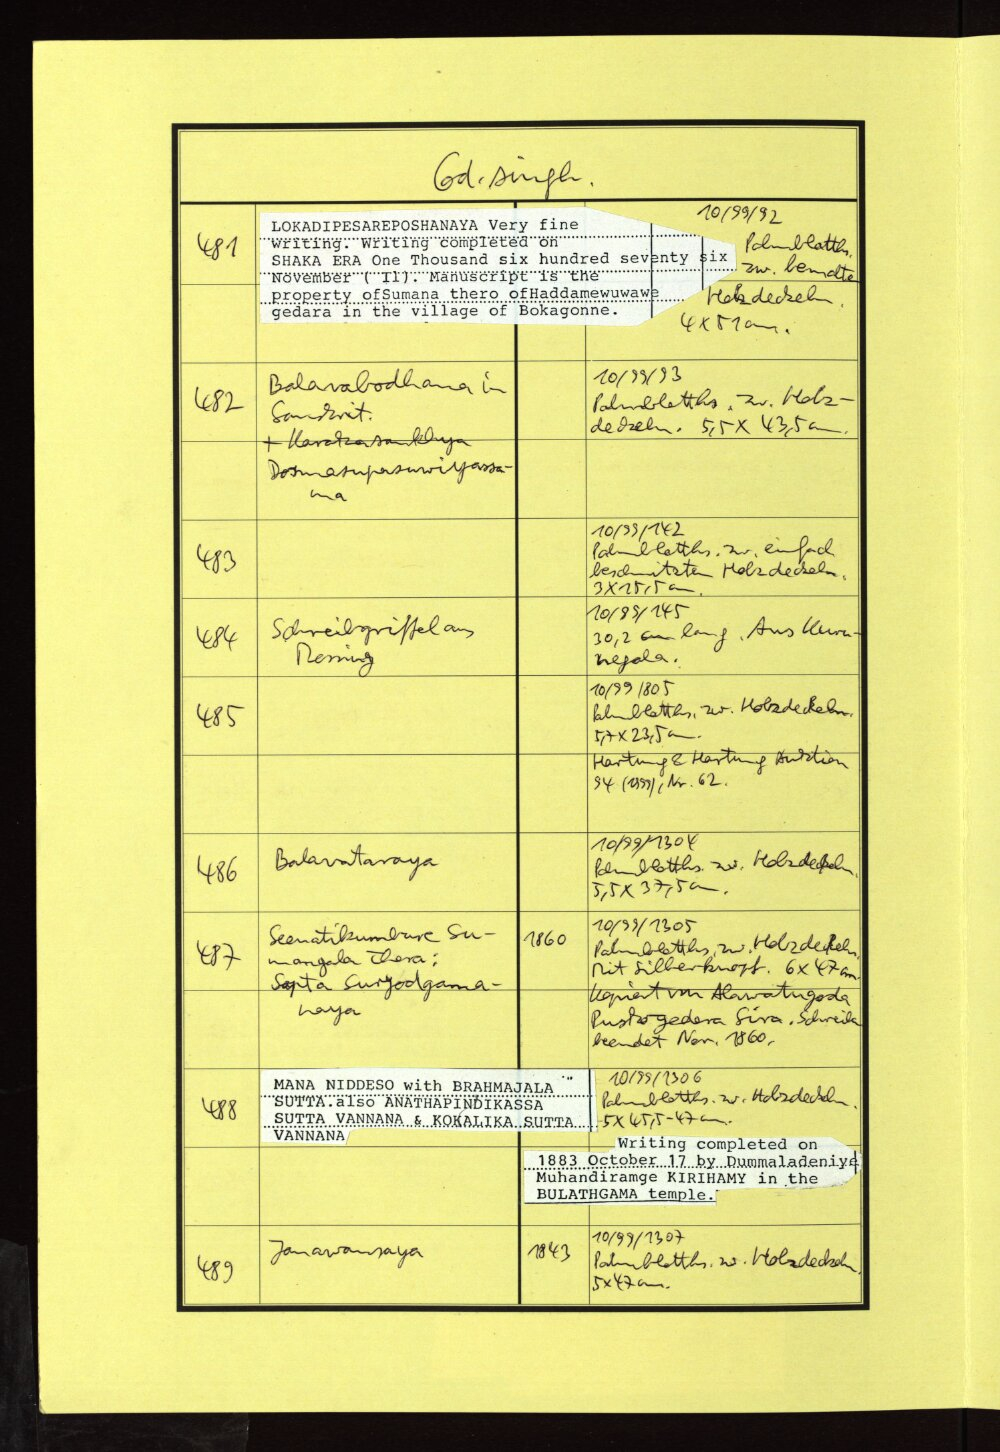 Cod. singh.
481
LOKADIPESAREPOSHANAYA Very fine
writing. Writing completed on
SHAKA ERA One Thousand six hundred seventy six
November ( II). Manuscript is the
property ofSumana thero ofHaddamewuwawe
gedara in the village of Bokagonne.
10/99/92
Palmblatths.
zw. bemalte
Holzdeckeln.
4 X 51 cm.
482
Balavabodhana in
Sanskrit.
+ Karakasankhya
10/99/93
Palmblatths. zw. Holz-
deckeln. 5,5 X 43,5 cm.
483
10/99/142
Palmblatths. zw. einfach
beschnitzten Holzdeckeln.
3 X 25,5 cm.
484
Schreibgriffel aus
Messing
10/99/145
30,2 cm lang. Aus Kuru-
negala.
485
10/99/805
Palmblatths. zw. Holzdeckeln.
5,7 X 23,5 cm.
Hartung & Hartung Auktion
94 (1999), Nr. 62.
486
Balavataraya
10/99/1304
Palmblatths. zw. Holzdeckeln.
5,5 X 37,5 cm.
487
Seenatikumbure Su-
mangala Thera:
Sapta Suryodgama-
naya
1860
10/99/1305
Palmblatths. zw. Holzdeckeln.
Mit Silberknopf. 6 X 47 cm
Kopiert von Alawatugoda
gedera Sira. Schreib
beendet Nov. 1860.
488
MANA NIDDESO with BRAHMAJALA "
SUTTA.also ANATHAPINDIKASSA
SUTTA VANNANA & KOKALIKA SUTTA
VANNANA
10/99/1306
Palmblatths. zw. Holzdeckeln.
5 X 45,5-47 cm.
Writing completed on
1883 October 17 by Dummaladeniye
Muhandiramge KIRIHAMY in the
BULATHGAMA temple.
489
Janawansaya
1843
10/99/1307
Palmblatths. zw. Holzdeckeln.
5 X 47 cm.